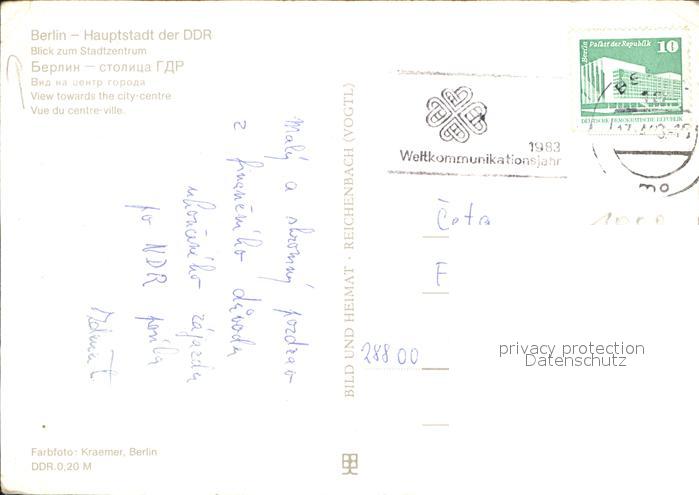 Berlin – Hauptstadt der DDR
Blick zum Stadtzentrum
Берлин – столица ГДР
Вид на центр города
View towards the city-centre
Vue du centre-ville.
Malý a skromný pozdrav
z finančního důvodu
ukončeného zájezdu
po NDR posílá
BILD UND HEIMAT · REICHENBACH (VOGTL)
Berlin Palast der Republik 10
DEUTSCHE DEMOKRATISCHE REPUBLIK
1983
Weltkommunikationsjahr
Četa
F
288 00
privacy protection
Datenschutz
Farbfoto: Kraemer, Berlin
DDR.0,20 M